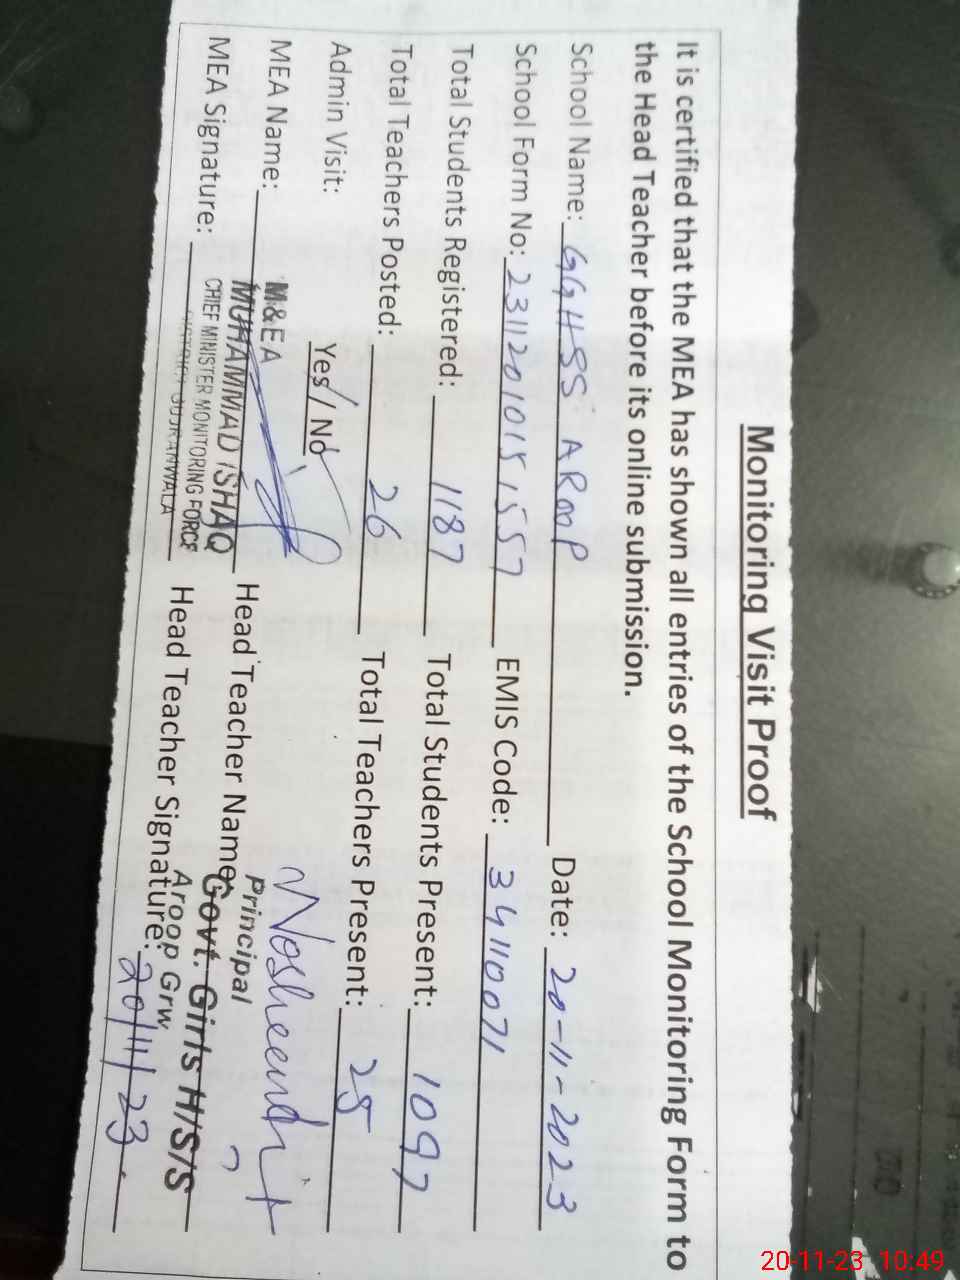 Monitoring Visit Proof
It is certified that the MEA has shown all entries of the School Monitoring Form to
the Head Teacher before its online submission.
School Name: GGHSS AROOP Date: 20-11-2023
School Form No: 231120101515 7 EMIS Code: 34110071
Total Students Registered: 1187 Total Students Present: 1097
Total Teachers Posted: 26 Total Teachers Present: 25
Admin Visit: Yes / No
MEA Name: M&EA MUHAMMAD ISHAQ Head Teacher Name:
MEA Signature: CHIEF MINISTER MONITORING FORCE Head Teacher Signature:
DISTRICT GUJRANWALA
Principal
Govt. Girls H/S/S
Aroop Grw
20/11/23.
20-11-23 10:49